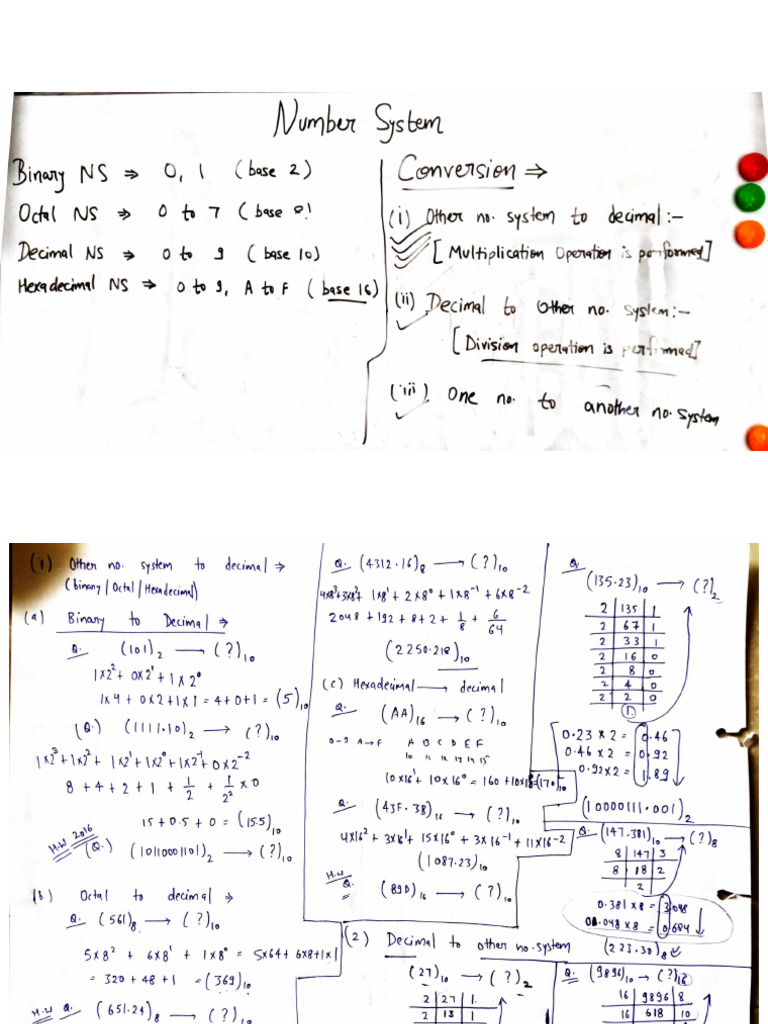 Number System
Binary NS ⇒ 0, 1 (base 2)
Octal NS ⇒ 0 to 7 (base 8)
Decimal NS ⇒ 0 to 9 (base 10)
Hexadecimal NS ⇒ 0 to 9, A to F (base 16)
Conversion ⇒
(i) Other no. system to decimal :-
[Multiplication Operation is performed]
(ii) Decimal to other no. system :-
[Division operation is performed]
(iii) One no. to another no. system
(1) Other no. system to decimal ⇒
(binary / Octal / Hexadecimal)
(a) Binary to Decimal ⇒
Q. (101)₂ → (?)₁₀
1×2² + 0×2¹ + 1×2⁰
1×4 + 0×2 + 1×1 = 4+0+1 = (5)₁₀
(Q.) (1111.10)₂ → (?)₁₀
1×2³ + 1×2² + 1×2¹ + 1×2⁰ + 1×2⁻¹ + 0×2⁻²
8 + 4 + 2 + 1 + 1/2 + 1/2² × 0
15 + 0.5 + 0 = (15.5)₁₀
H.W 2016
(Q.) (1011000101)₂ → (?)₁₀
(b) Octal to decimal ⇒
Q. (561)₈ → (?)₁₀
5×8² + 6×8¹ + 1×8⁰ = 5×64 + 6×8 + 1×1
= 320 + 48 + 1 = (369)₁₀
H.W Q. (651.24)₈ → (?)₁₀
Q. (4312.16)₈ → (?)₁₀
4×8³+3×8²+ 1×8¹ + 2×8⁰ + 1×8⁻¹ + 6×8⁻²
2048 + 192 + 8 + 2 + 1/8 + 6/64
(2250.218)₁₀
(c) Hexadecimal → decimal
Q. (AA)₁₆ → (?)₁₀
0-9 A→F A B C D E F
10 11 12 13 14 15
10×16¹ + 10×16⁰ = 160 + 10×1 = (170)₁₀
Q. (43F.3B)₁₆ → (?)₁₀
4×16² + 3×16¹ + 15×16⁰ + 3×16⁻¹ + 11×16⁻²
(1087.23)₁₀
H.W
Q. (89D)₁₆ → (?)₁₀
(2) Decimal to other no. system
(27)₁₀ → (?)₂
2 | 27 | 1
2 | 13 | 1
Q. (135.23)₁₀ → (?)₂
2 | 135 | 1
2 | 67 | 1
2 | 33 | 1
2 | 16 | 0
2 | 8 | 0
2 | 4 | 0
2 | 2 | 0
1
0.23 × 2 = 0.46
0.46 × 2 = 0.92
0.92 × 2 = 1.89
(10000111.001)₂
Q. (147.381)₁₀ → (?)₈
8 | 147 | 3
8 | 18 | 2
2
0.381 × 8 = 3.048
0.048 × 8 = 0.684
(223.30)₈
Q. (9896)₁₀ → (?)₁₆
16 | 9896 | 8
16 | 618 | 10